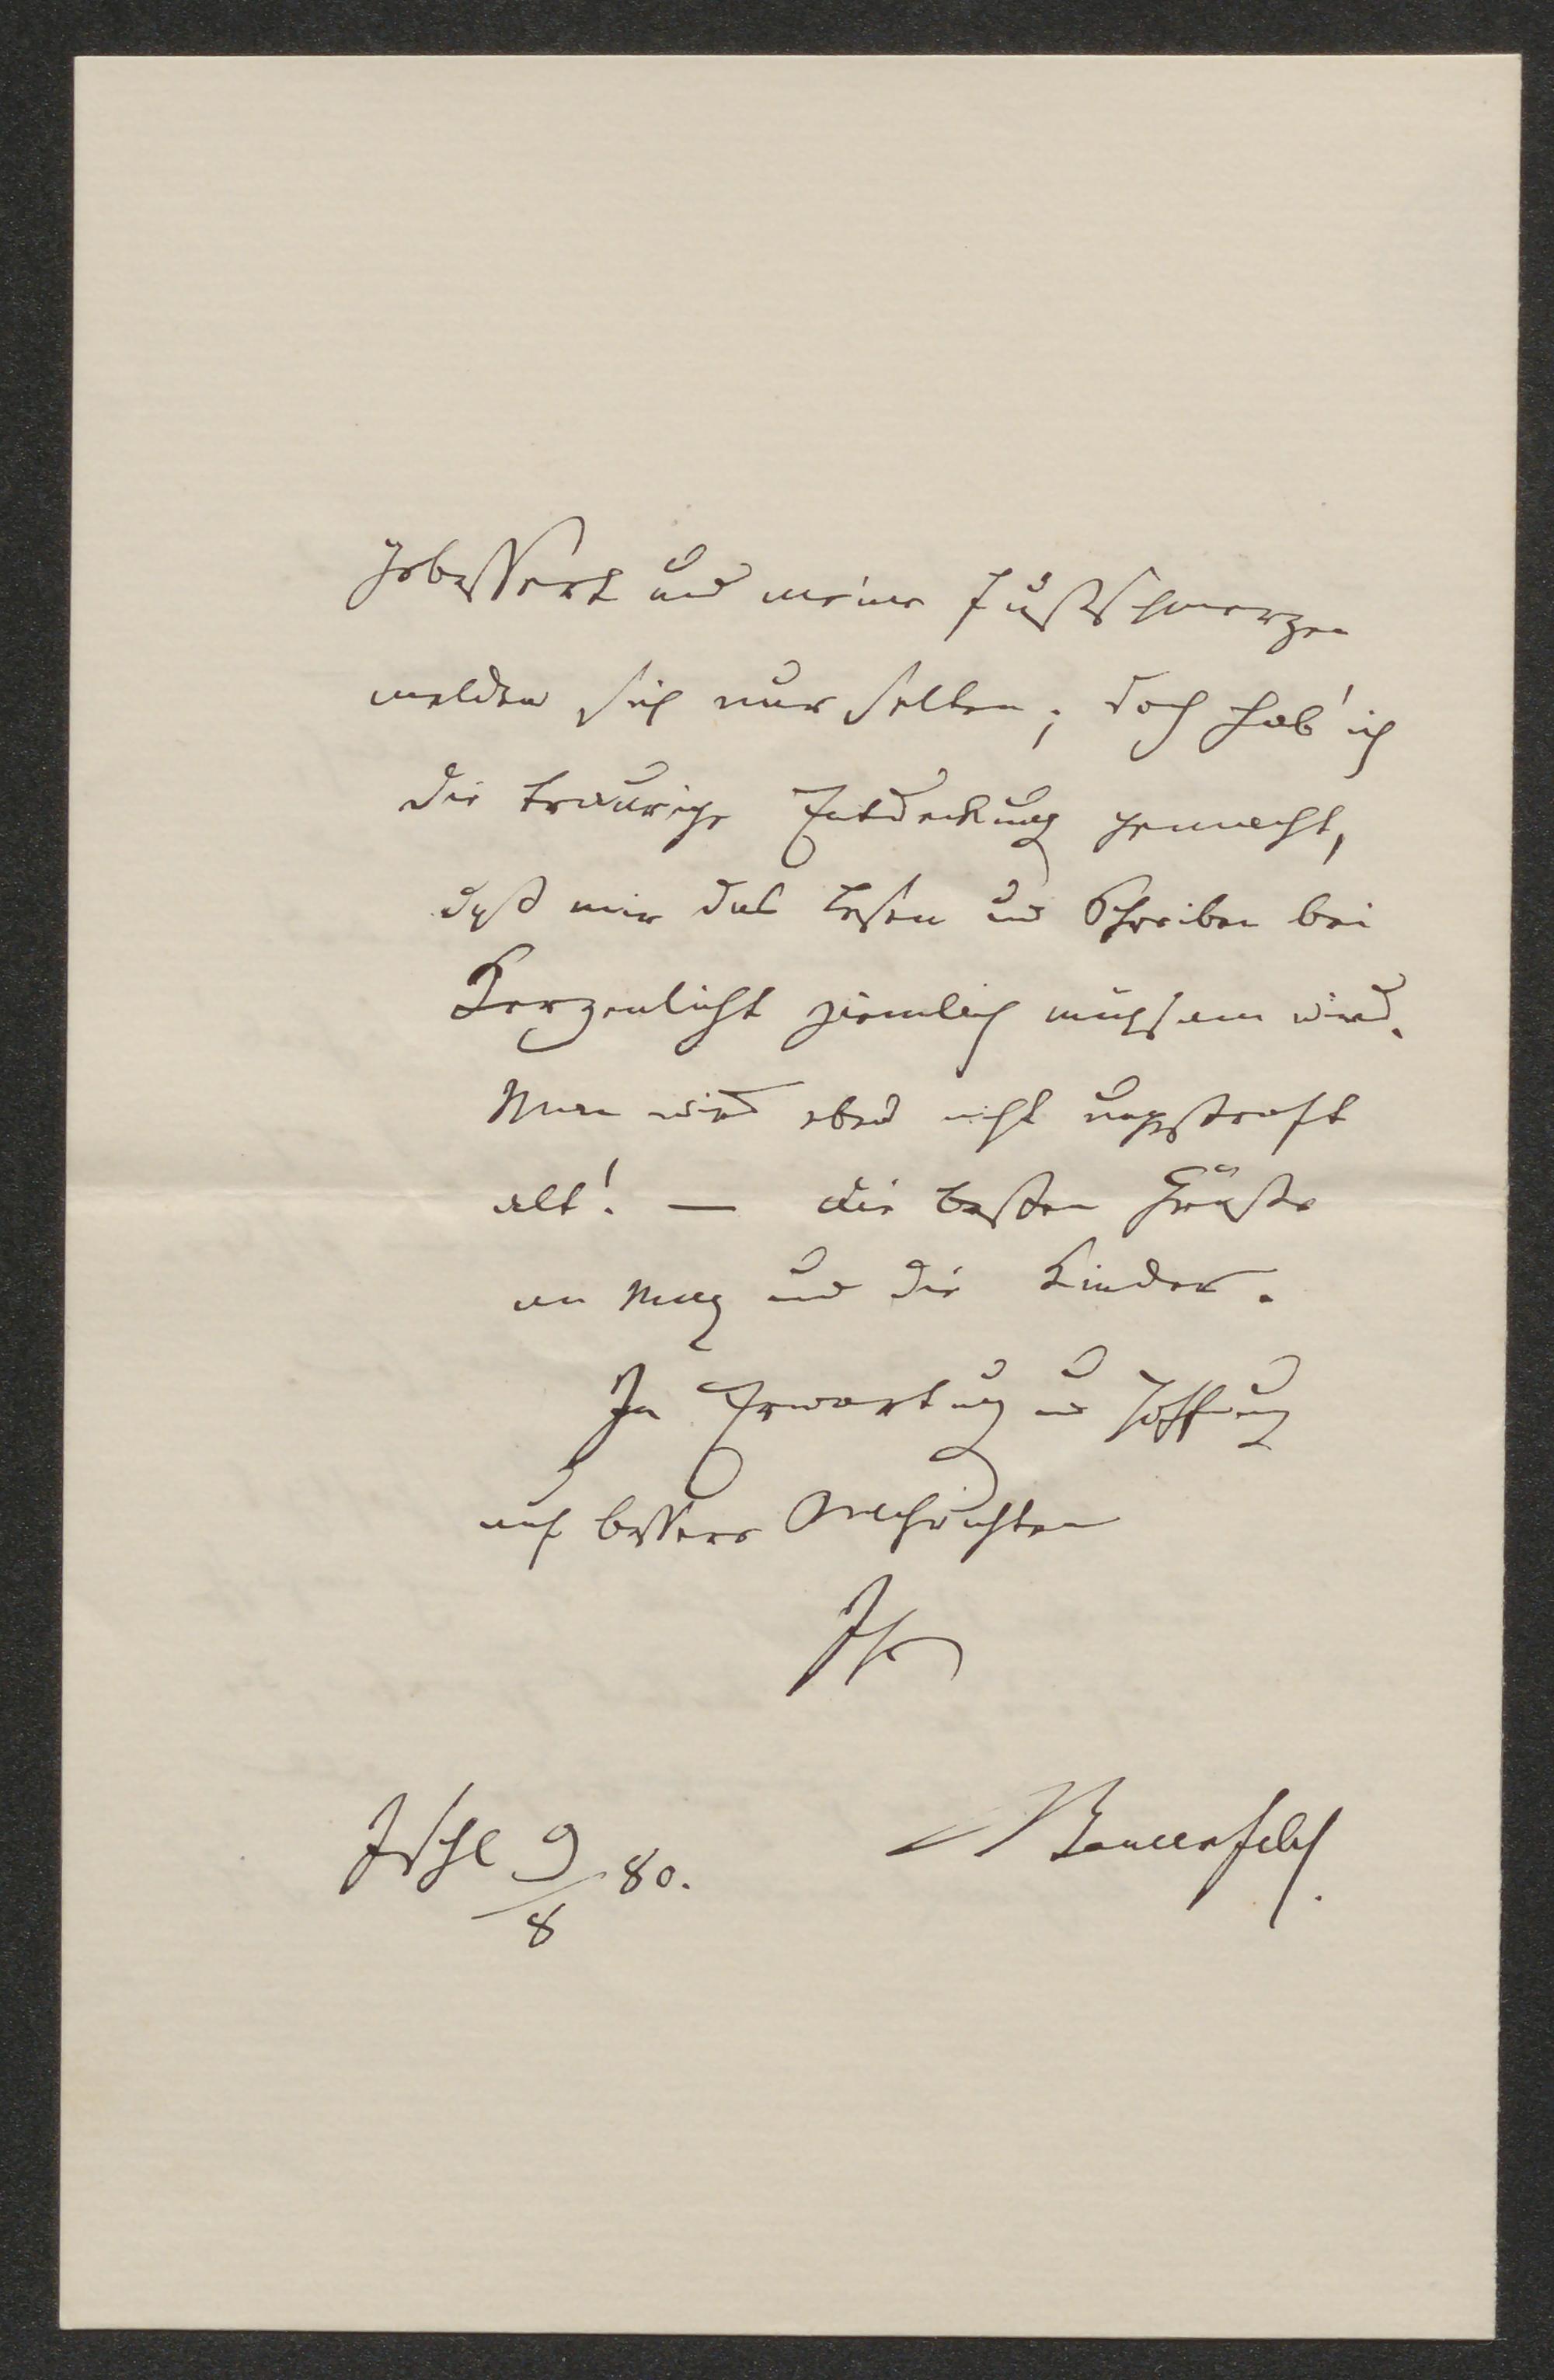 gebessert und meine Fußschmerzen
melden sich nur selten; doch hab' ich
die traurige Entdeckung gemacht,
daß mir das Lesen und Schreiben bei
Kerzenlicht ziemlich mühsam wird.
Man wird eben nicht ungestraft
alt! — Die besten Grüße
an und die Kinder.
In Erwartung und Hoffnung
auf bessere Nachrichten
Ihr
Bauernfeld.
Ischl 9/8 80.